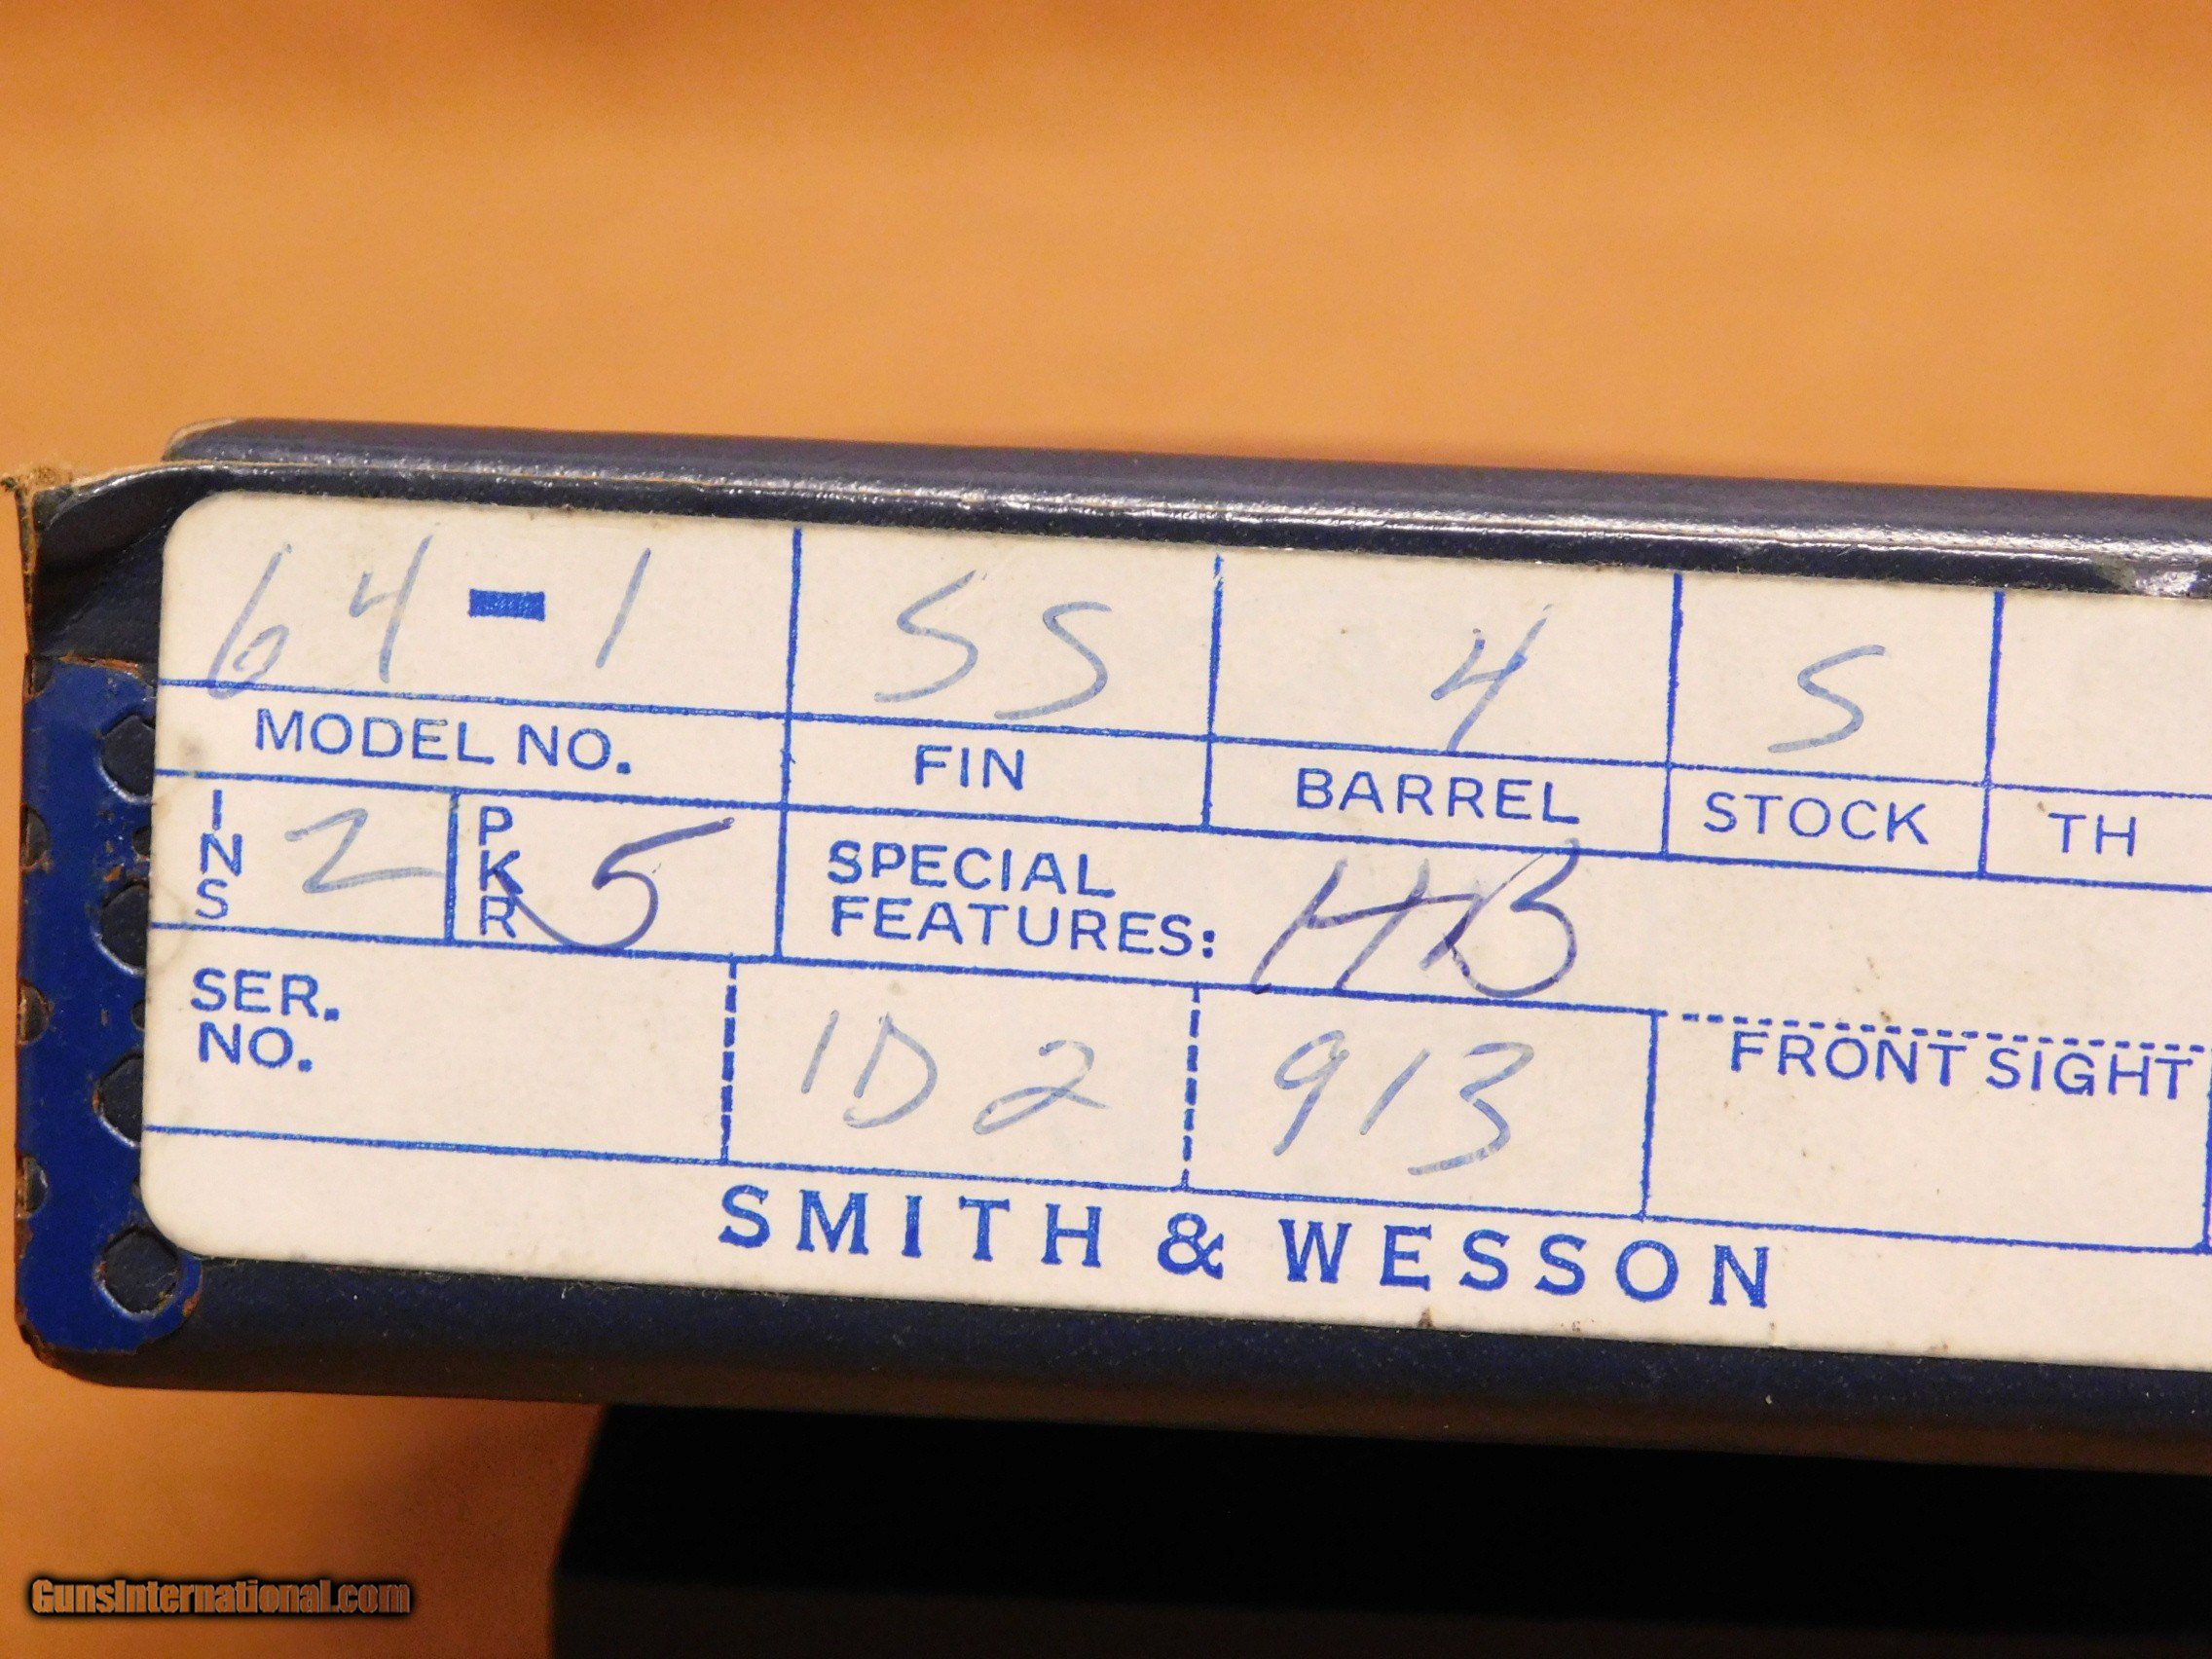 64-1 SS 4 S
MODEL NO. FIN BARREL STOCK TH
INS 2 PKR 5 SPECIAL FEATURES: HB
SER. NO. 1D2 913 FRONT SIGHT
SMITH & WESSON
GunsInternational.com